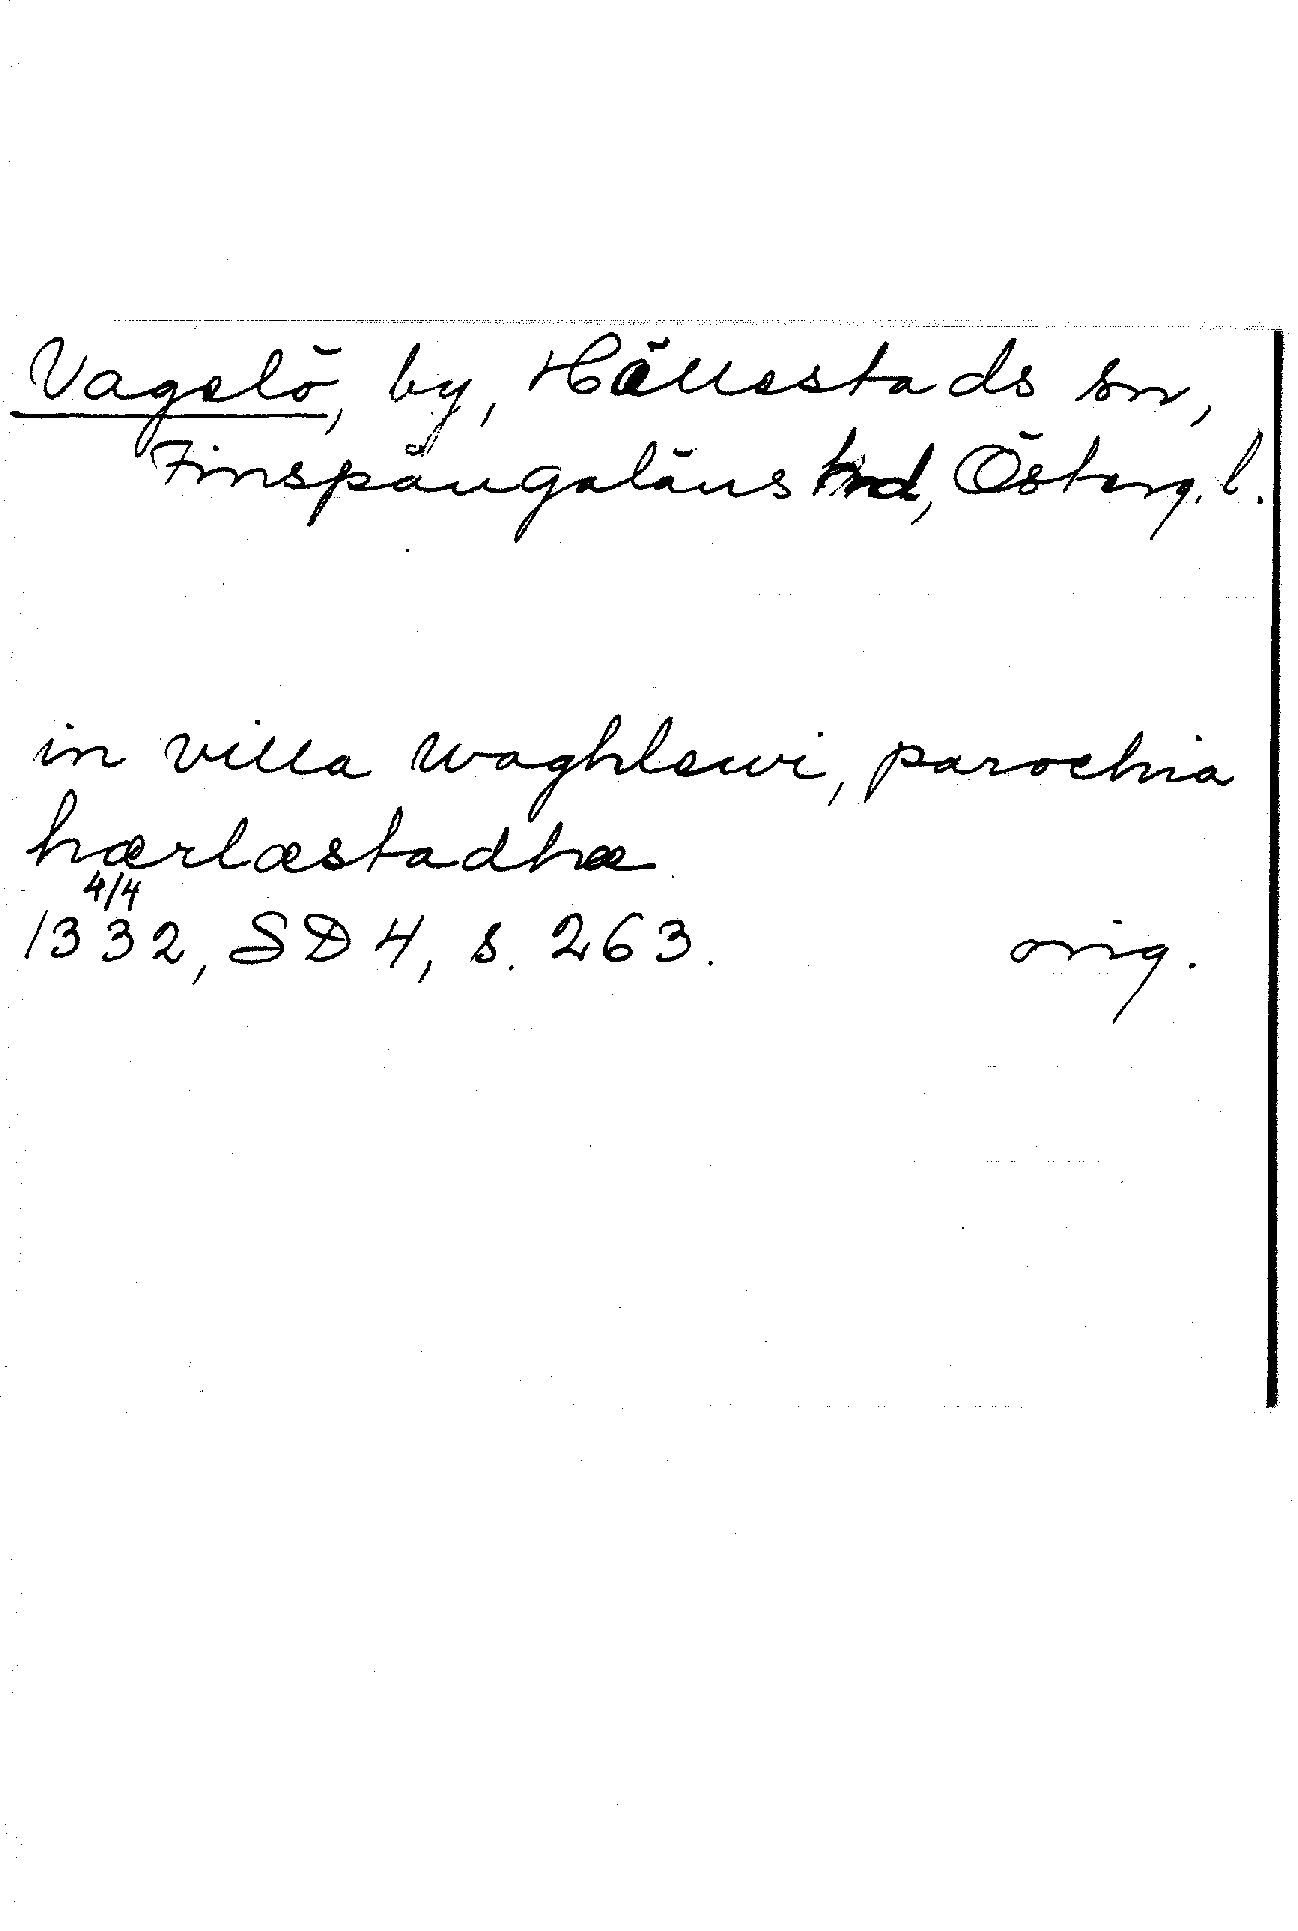 Vagelö, by, Hällestads sn,
Finspångaläns hd, Österg. l.
in villa waghlewi, parochia
hærlæstadhæ
4/4
1332, SD 4, s. 263. orig.